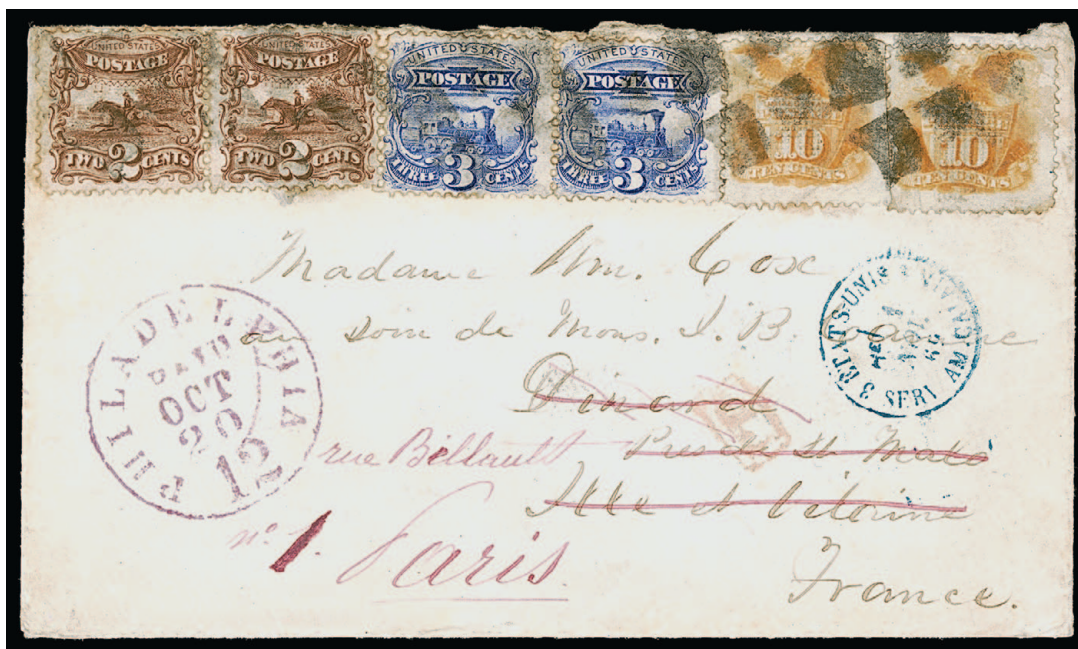 UNITED STATES POSTAGE TWO 2 CENTS
UNITED STATES POSTAGE TWO 2 CENTS
UNITED STATES POSTAGE THREE 3 CENTS
UNITED STATES POSTAGE THREE 3 CENTS
10 TEN CENTS
10 TEN CENTS
Madame Wm. Cox
au soin de Mons. J. B.
Dinard
Pres de St Malo
Ille et Vilaine
France.
rue Billault
no. 1. Paris
PHILADELPHIA
PAID
OCT
20
12
3 ETATS-UNIS SERV AM CALAIS